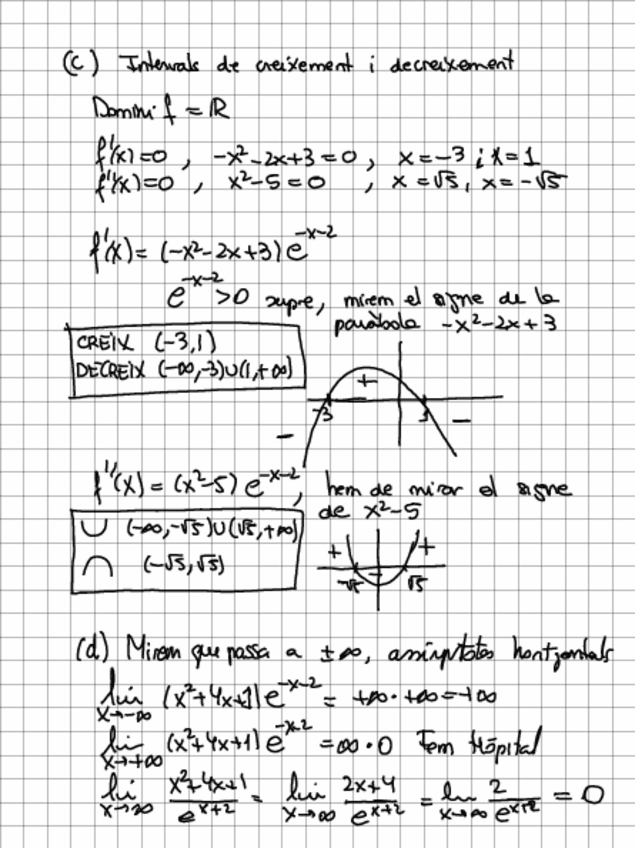 (c) Intervals de creixement i decreixement
Domini f = ℝ
f'(x)=0 , -x²-2x+3=0 , x=-3 i x=1
f''(x)=0 , x²-5=0 , x=√5, x=-√5
f'(x)= (-x²-2x+3)e^{-x-2}
e^{-x-2}>0 sempre, mirem el signe de la
paràbola -x²-2x+3
CREIX (-3,1)
DECREIX (-∞,-3)∪(1,+∞)
+
-3 1
- -
f''(x)= (x²-5) e^{-x-2}, hem de mirar el signe
de x²-5
∪ (-∞,-√5)∪(√5,+∞)
∩ (-√5,√5)
+ - +
-√5 √5
(d) Mirem que passa a ±∞, asímptotes horitzontals
lim_{x→-∞} (x²+4x+1)e^{-x-2} = +∞·+∞=+∞
lim_{x→+∞} (x²+4x+1)e^{-x-2} =∞·0 Fem Hôpital
lim_{x→∞} (x²+4x+1)/(e^{x+2}) = lim_{x→∞} (2x+4)/(e^{x+2}) = lim_{x→∞} 2/(e^{x+2}) = 0